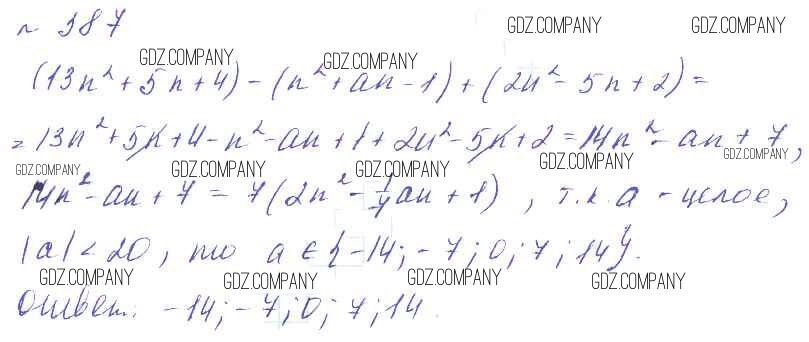 GDZ.COMPANY GDZ.COMPANY
№ 387
GDZ.COMPANY GDZ.COMPANY
(13n² + 5n + 4) - (n² + an - 1) + (2n² - 5n + 2) =
= 13n² + 5n + 4 - n² - an + 1 + 2n² - 5n + 2 = 14n² - an + 7,
GDZ.COMPANY GDZ.COMPANY GDZ.COMPANY GDZ.COMPANY GDZ.COMPANY
14n² - an + 7 = 7(2n² - 1/7 an + 1), т.к. a - целое,
|a| < 20, то a ∈ {-14; -7; 0; 7; 14}.
GDZ.COMPANY GDZ.COMPANY GDZ.COMPANY GDZ.COMPANY
Ответ: -14; -7; 0; 7; 14.